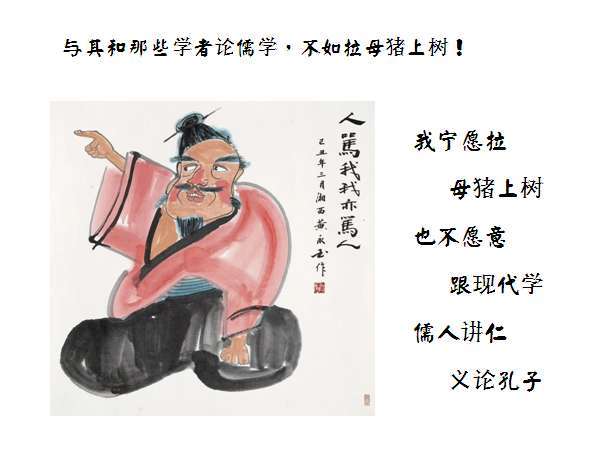 与其和那些学者论儒学，不如拉母猪上树！
人骂我我亦骂人
己丑年三月湘西黄永玉作
我宁愿拉
母猪上树
也不愿意
跟现代学
儒人讲仁
义论孔子